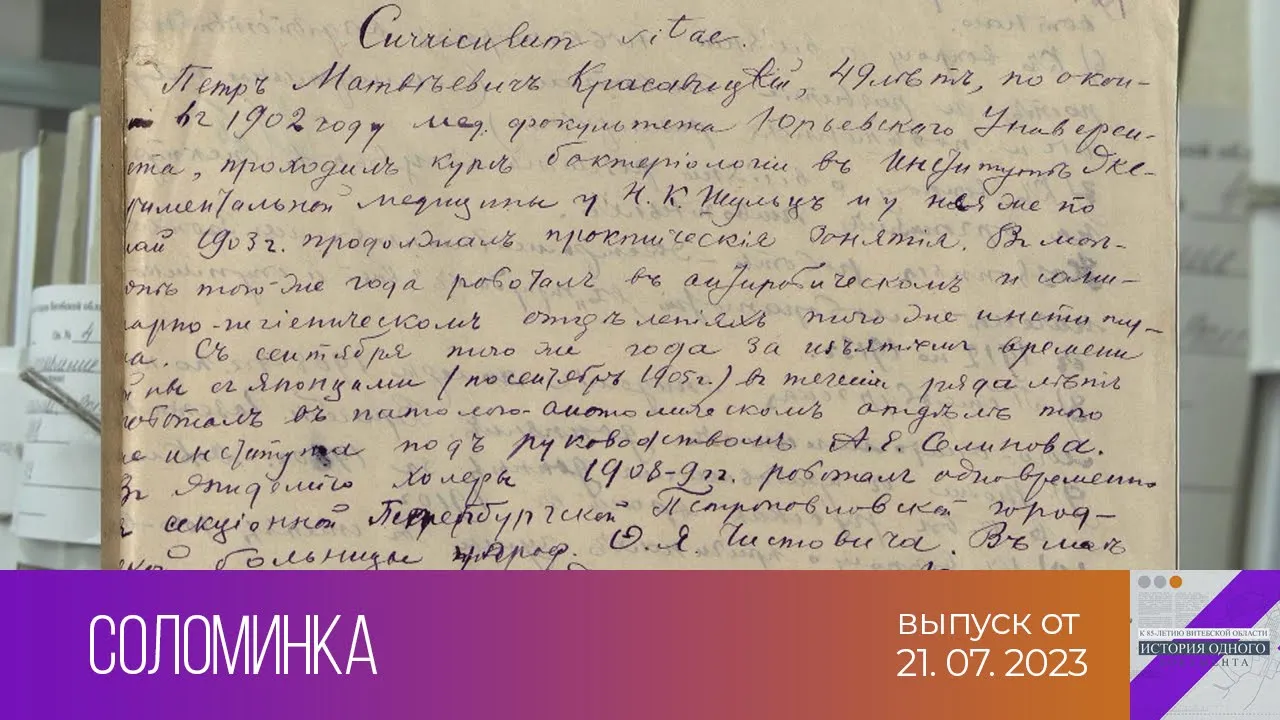 Curriculum vitae.
Петръ Матвѣевичъ Красавицкій, 49 лѣтъ, по окон-
въ 1902 году мед. факультета Юрьевскаго Универси-
ета, проходилъ курсъ бактеріологіи въ Институтѣ Экс-
риментальной медицины у Н. К. Шульцъ и у нея же по
май 1903 г. продолжалъ практическія занятія. Въ
того-же года работалъ въ антирабическомъ и сани-
арно-гигіеническомъ отдѣленіяхъ того же инсти ту-
та. Съ сентября того же года за изъятіемъ времени
ны съ японцами (по сентябрь 1905 г.) въ теченіи ряда лѣтъ
работалъ въ патолого-анатомическомъ отдѣлѣ того
же института подъ руководствомъ А. Е. Селинова.
Въ эпидемію холеры 1908-9 гг. работалъ одновременно
секціонной Петербургской Петропавловской город-
ской больницы проф. Ѳ. Я. Чистовича. Въ маѣ
СОЛОМИНКА
выпуск от
21. 07. 2023
К 85-ЛЕТИЮ ВИТЕБСКОЙ ОБЛАСТИ
ИСТОРИЯ ОДНОГО
ДОКУМЕНТА